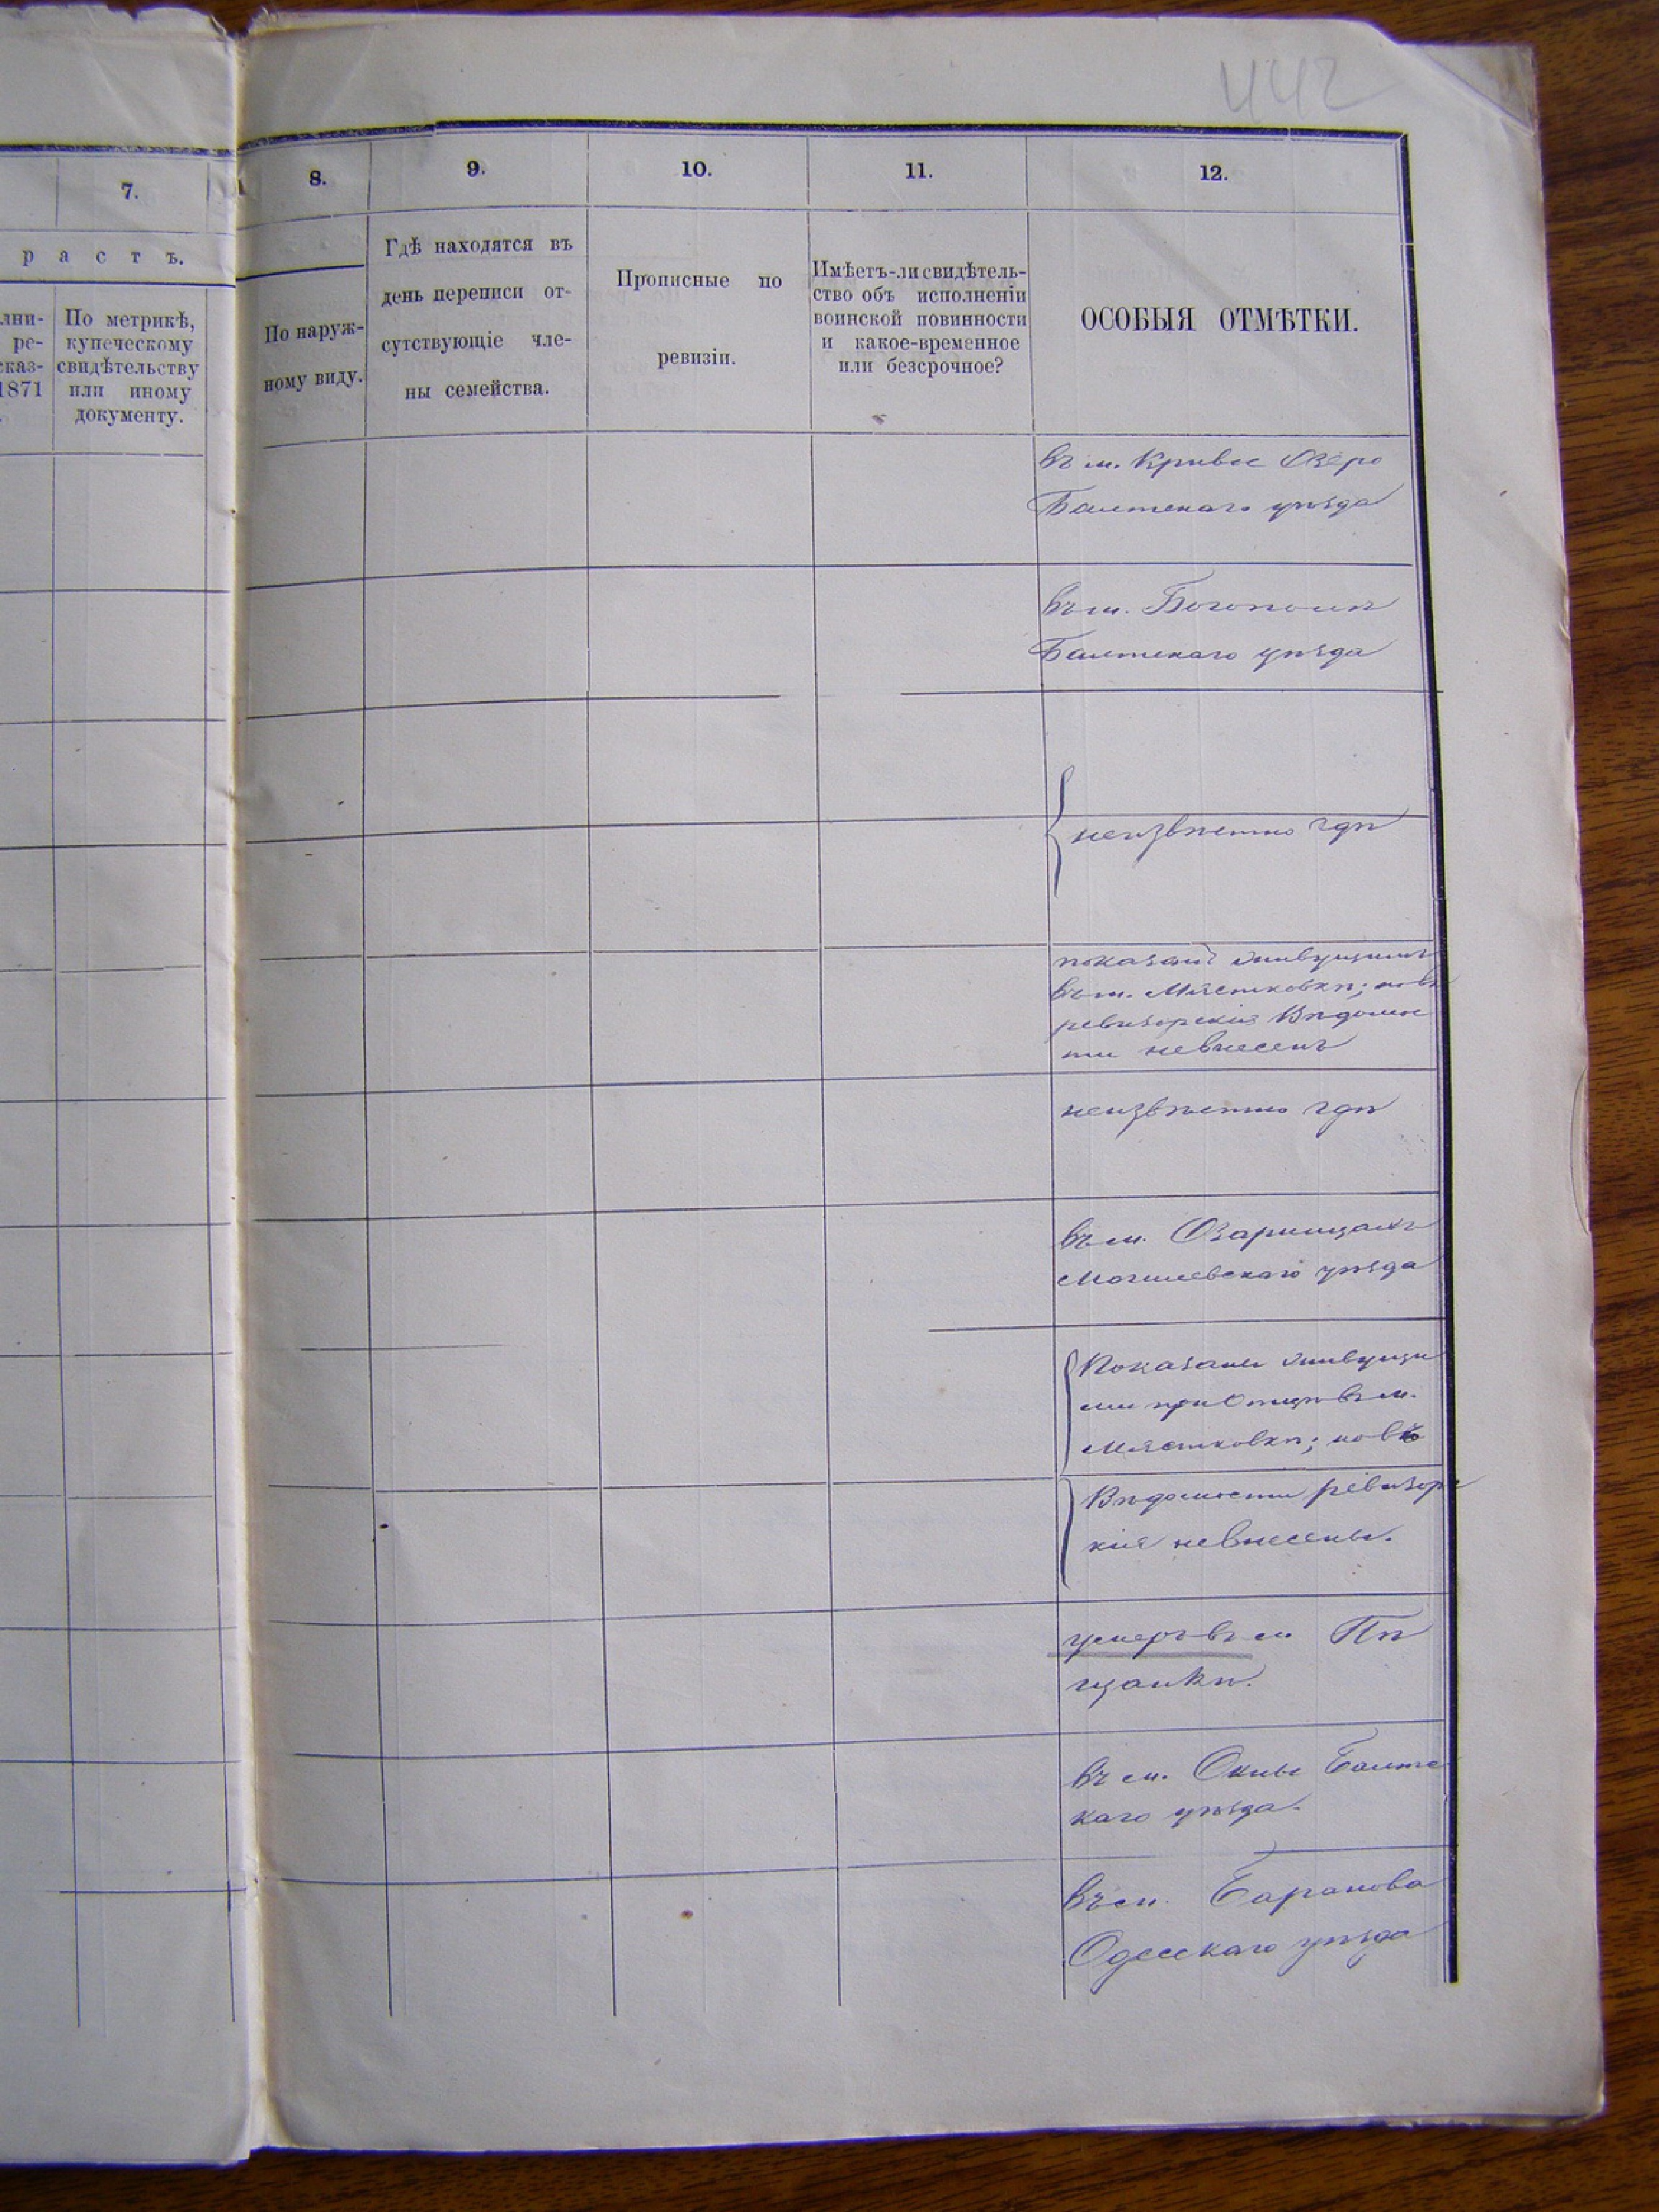 442
7.
8.
9.
10.
11.
12.
р а с т ъ.
лни-
ре-
сказ-
1871
По метрикѣ,
купеческому
свидѣтельству
или иному
документу.
По наруж-
ному виду.
Гдѣ находятся въ
день переписи от-
сутствующіе чле-
ны семейства.
Прописные по
ревизіи.
Имѣетъ-ли свидѣтель-
ство объ исполненіи
воинской повинности
и какое-временное
или безсрочное?
ОСОБЫЯ ОТМѢТКИ.
въ м. Кривое Озеро
Балтскаго уѣзда
въ м. Богополѣ
Балтскаго уѣзда
неизвѣстно гдѣ
показанъ живущимъ
въ м. Мястковкѣ; но въ
ревизорскія Вѣдомос
ти невнесенъ
неизвѣстно гдѣ
въ м. Озаринцахъ
Могилевскаго уѣзда
Показаны живущи
ми при Отцѣ въ м.
Мястковкѣ; но въ
Вѣдомости ревизорс
кія невнесены.
умеръ въ м Пѣ
щанкѣ.
въ м. Окны Балтс
каго уѣзда.
въ м. Баранова
Одесскаго уѣзда